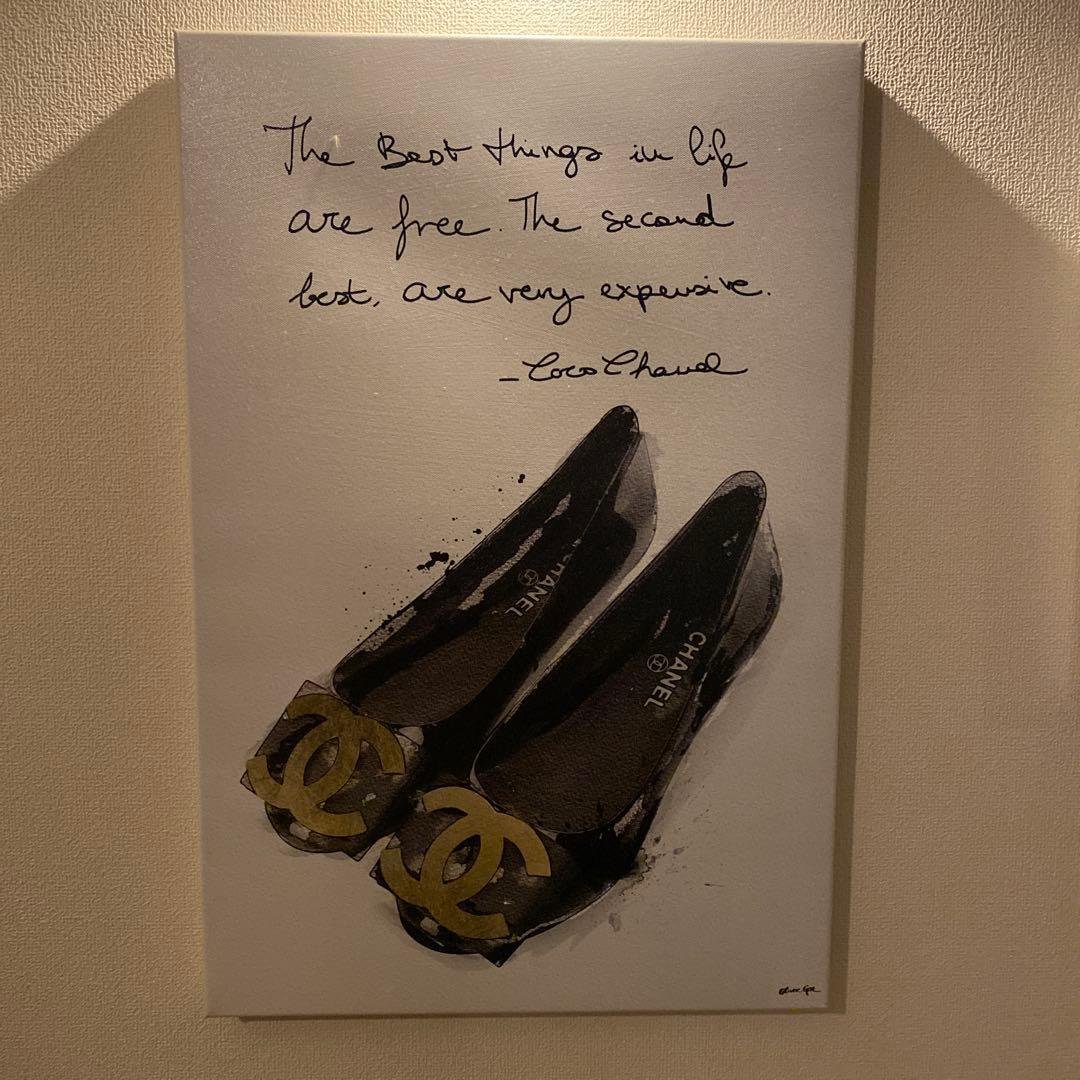 The Best things in life
are free. The second
best, are very expensive.
– Coco Chanel
CHANEL
CHANEL